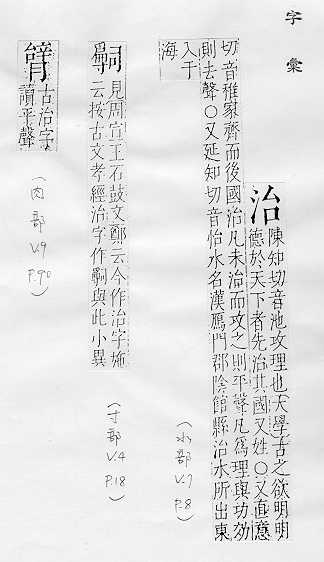 字彙
治
陳知切音池攻理也大學古之欲明明
德於天下者先治其國又姓〇又直意
切音稚家齊而後國治凡未治而攻之則平聲凡爲理與功効
則去聲〇又延知切音怡水名漢鴈門郡陰館縣治水所出東
入于
海
(水部 V.7 P.8)
見周宣王石鼓文鄭云今作治字施
云按古文孝經治字作與此小異
(寸部 V.4 P.18)
古治字
讀平聲
(肉部 V.9 P.90)